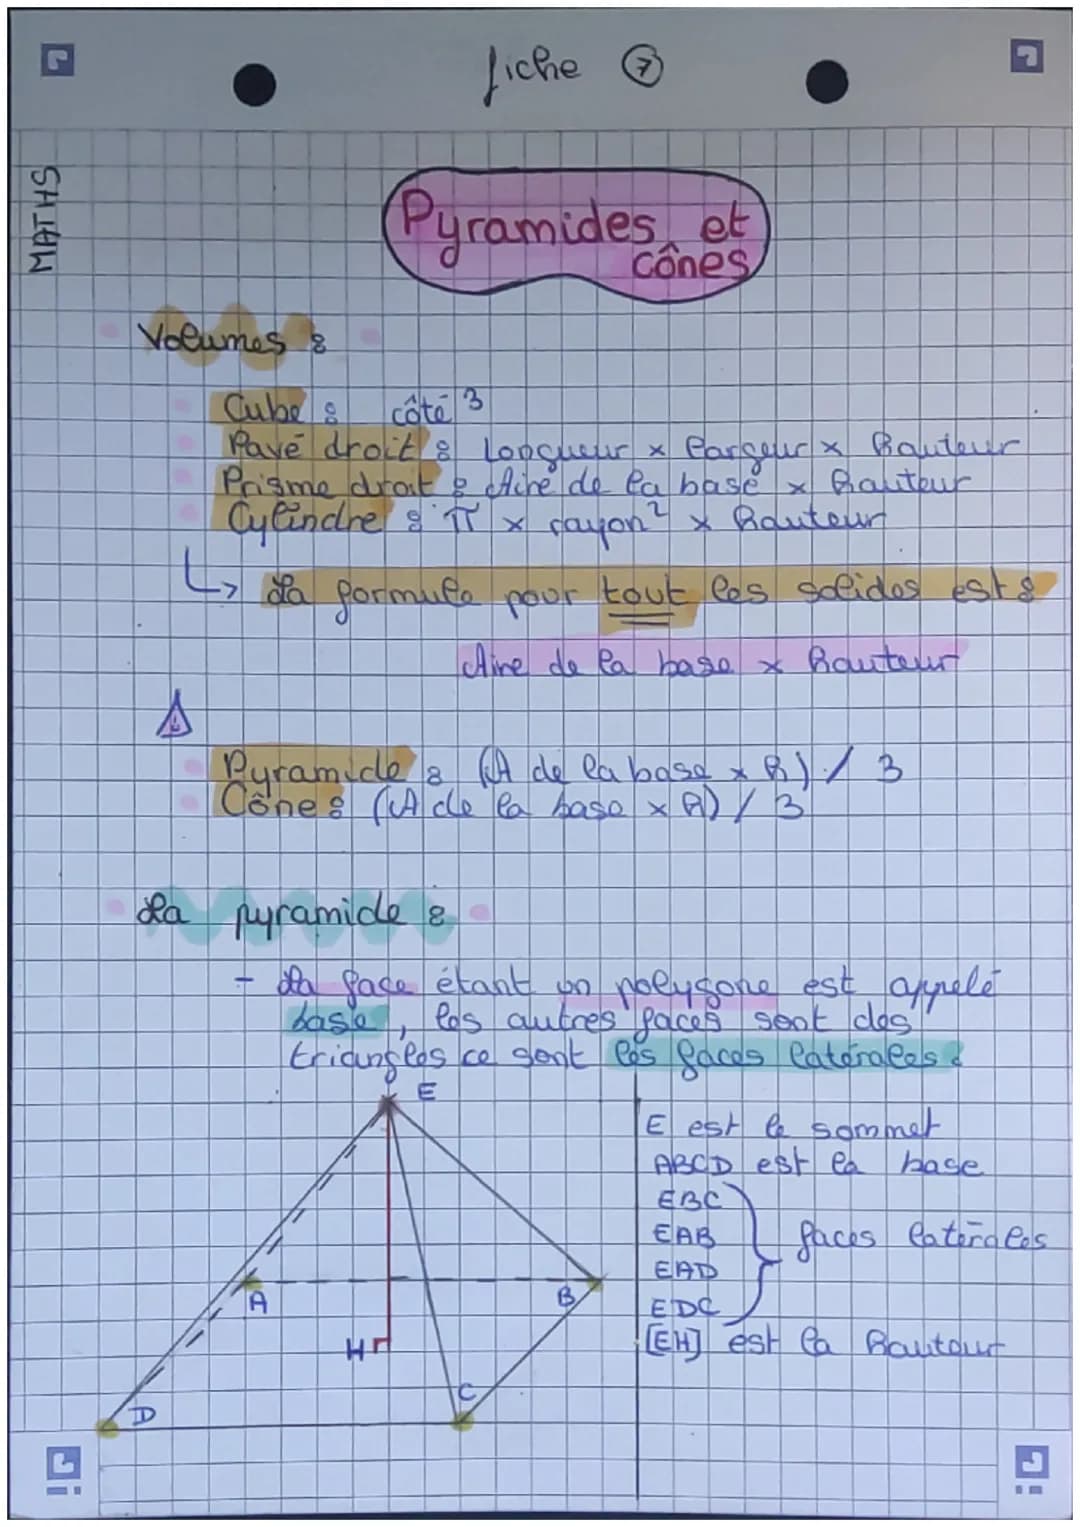 fiche 7
MATHS
Pyramides et
cônes
Volumes :
Cube : côté ³
Pavé droit : Longueur x largeur x hauteur
Prisme droit : Aire de la base x hauteur
Cylindre : π x rayon² x hauteur
↳ La formule pour tout les solides est :
Aire de la base x hauteur
!
Pyramide : (A de la base x h) / 3
Cône : (A de la base x h) / 3
La pyramide :
- La face étant un polygone est appelé
base, les autres faces sont des
triangles ce sont les faces latérales.
E
E est le sommet
ABCD est la base
EBC
EAB
faces latérales
EAD
EDC
[EH] est la hauteur
A
B
H
C
D